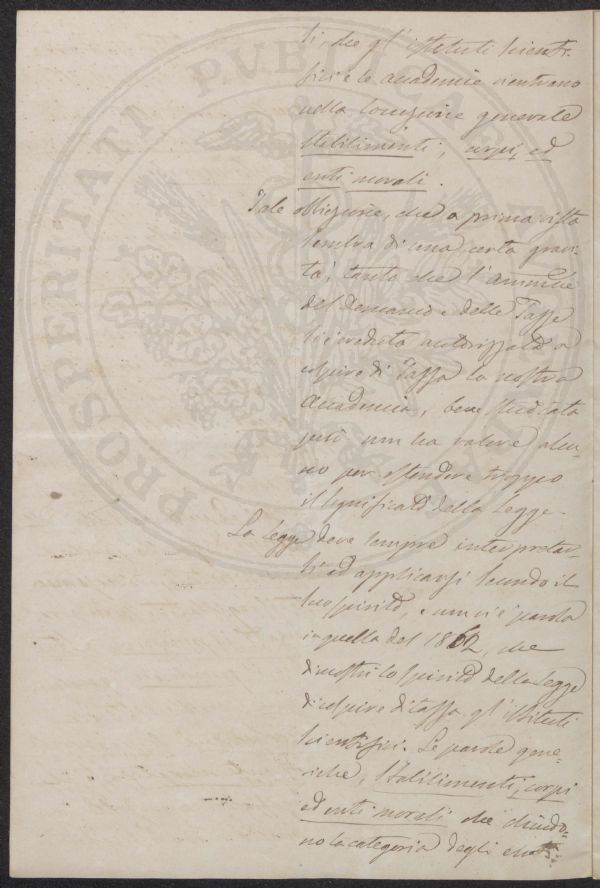 ti, che gl'istituti scienti-
fici e le accademie rientrano
nella locuzione generale
Stabilimenti, corpi, ed
enti morali.
Tale obiezione, che a prima vista
sembra di una certa gravi-
tà, tanto che l'Amm.ne
del Demanio e delle Tasse
si è creduta autorizzata a
colpire di Tassa la nostra
Accademia, bene studiata
però non ha valore alcu-
no per estendere troppo
il significato della Legge.
La Legge deve sempre interpretar-
si ed applicarsi secondo il
suo spirito, e non vi è parola
in quella del 1862, che
dimostri lo spirito della Legge
di colpire di tassa gl'Istituti
scientifici. Le parole gene-
riche, Stabilimenti, corpi
ed enti morali che chiudo-
no la categoria degli enti
PROSPERITATI PUBLICAE